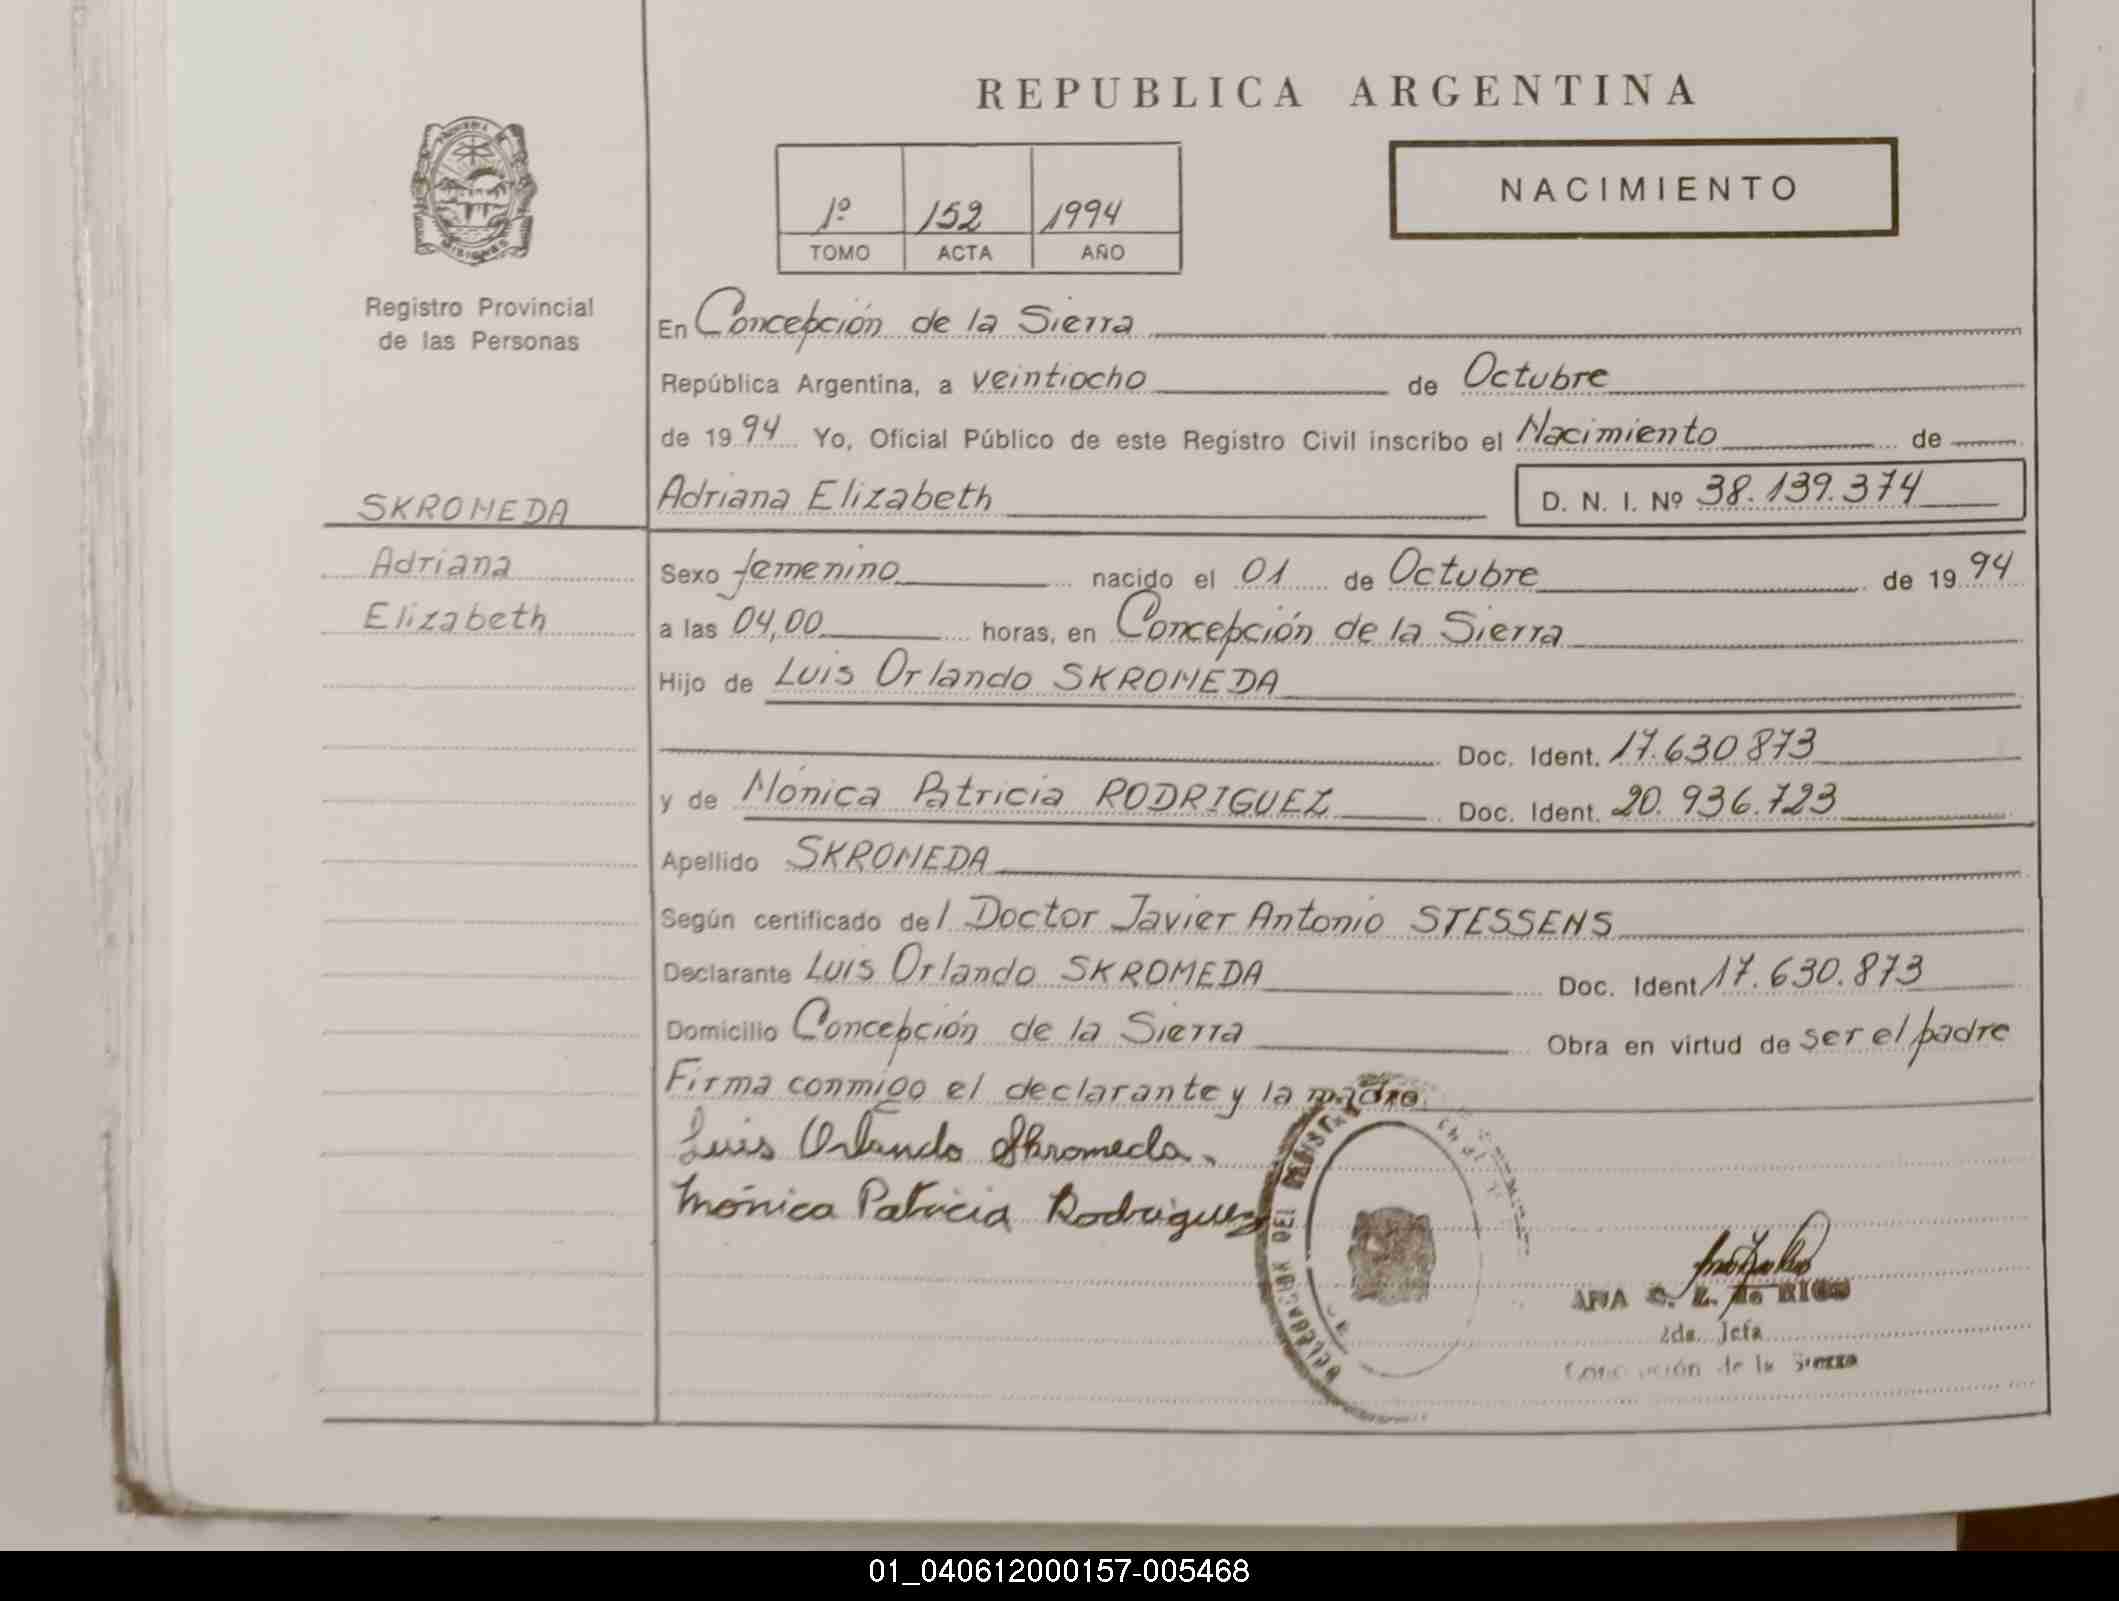 REPUBLICA ARGENTINA
NACIMIENTO
1º 152 1994
TOMO ACTA AÑO
Registro Provincial
de las Personas
En Concepción de la Sierra
República Argentina, a veintiocho de Octubre
de 1994 Yo, Oficial Público de este Registro Civil inscribo el Nacimiento de
SKROMEDA
Adriana Elizabeth D. N. I. Nº 38.139.374
Adriana
Sexo femenino nacido el 01 de Octubre de 1994
Elizabeth
a las 04,00 horas, en Concepción de la Sierra
Hijo de Luis Orlando SKROMEDA
Doc. Ident. 17.630873
y de Mónica Patricia RODRIGUEZ Doc. Ident. 20.936.723
Apellido SKROMEDA
Según certificado del Doctor Javier Antonio STESSENS
Declarante Luis Orlando SKROMEDA Doc. Ident. 17.630.873
Domicilio Concepción de la Sierra Obra en virtud de ser el padre
Firma conmigo el declarante y la madre.
Luis Orlando Skromeda.
Mónica Patricia Rodriguez
DELEGACION DEL REGISTRO
ANA de RIOS
2da. Jefa
Concepción de la Sierra
01_040612000157-005468